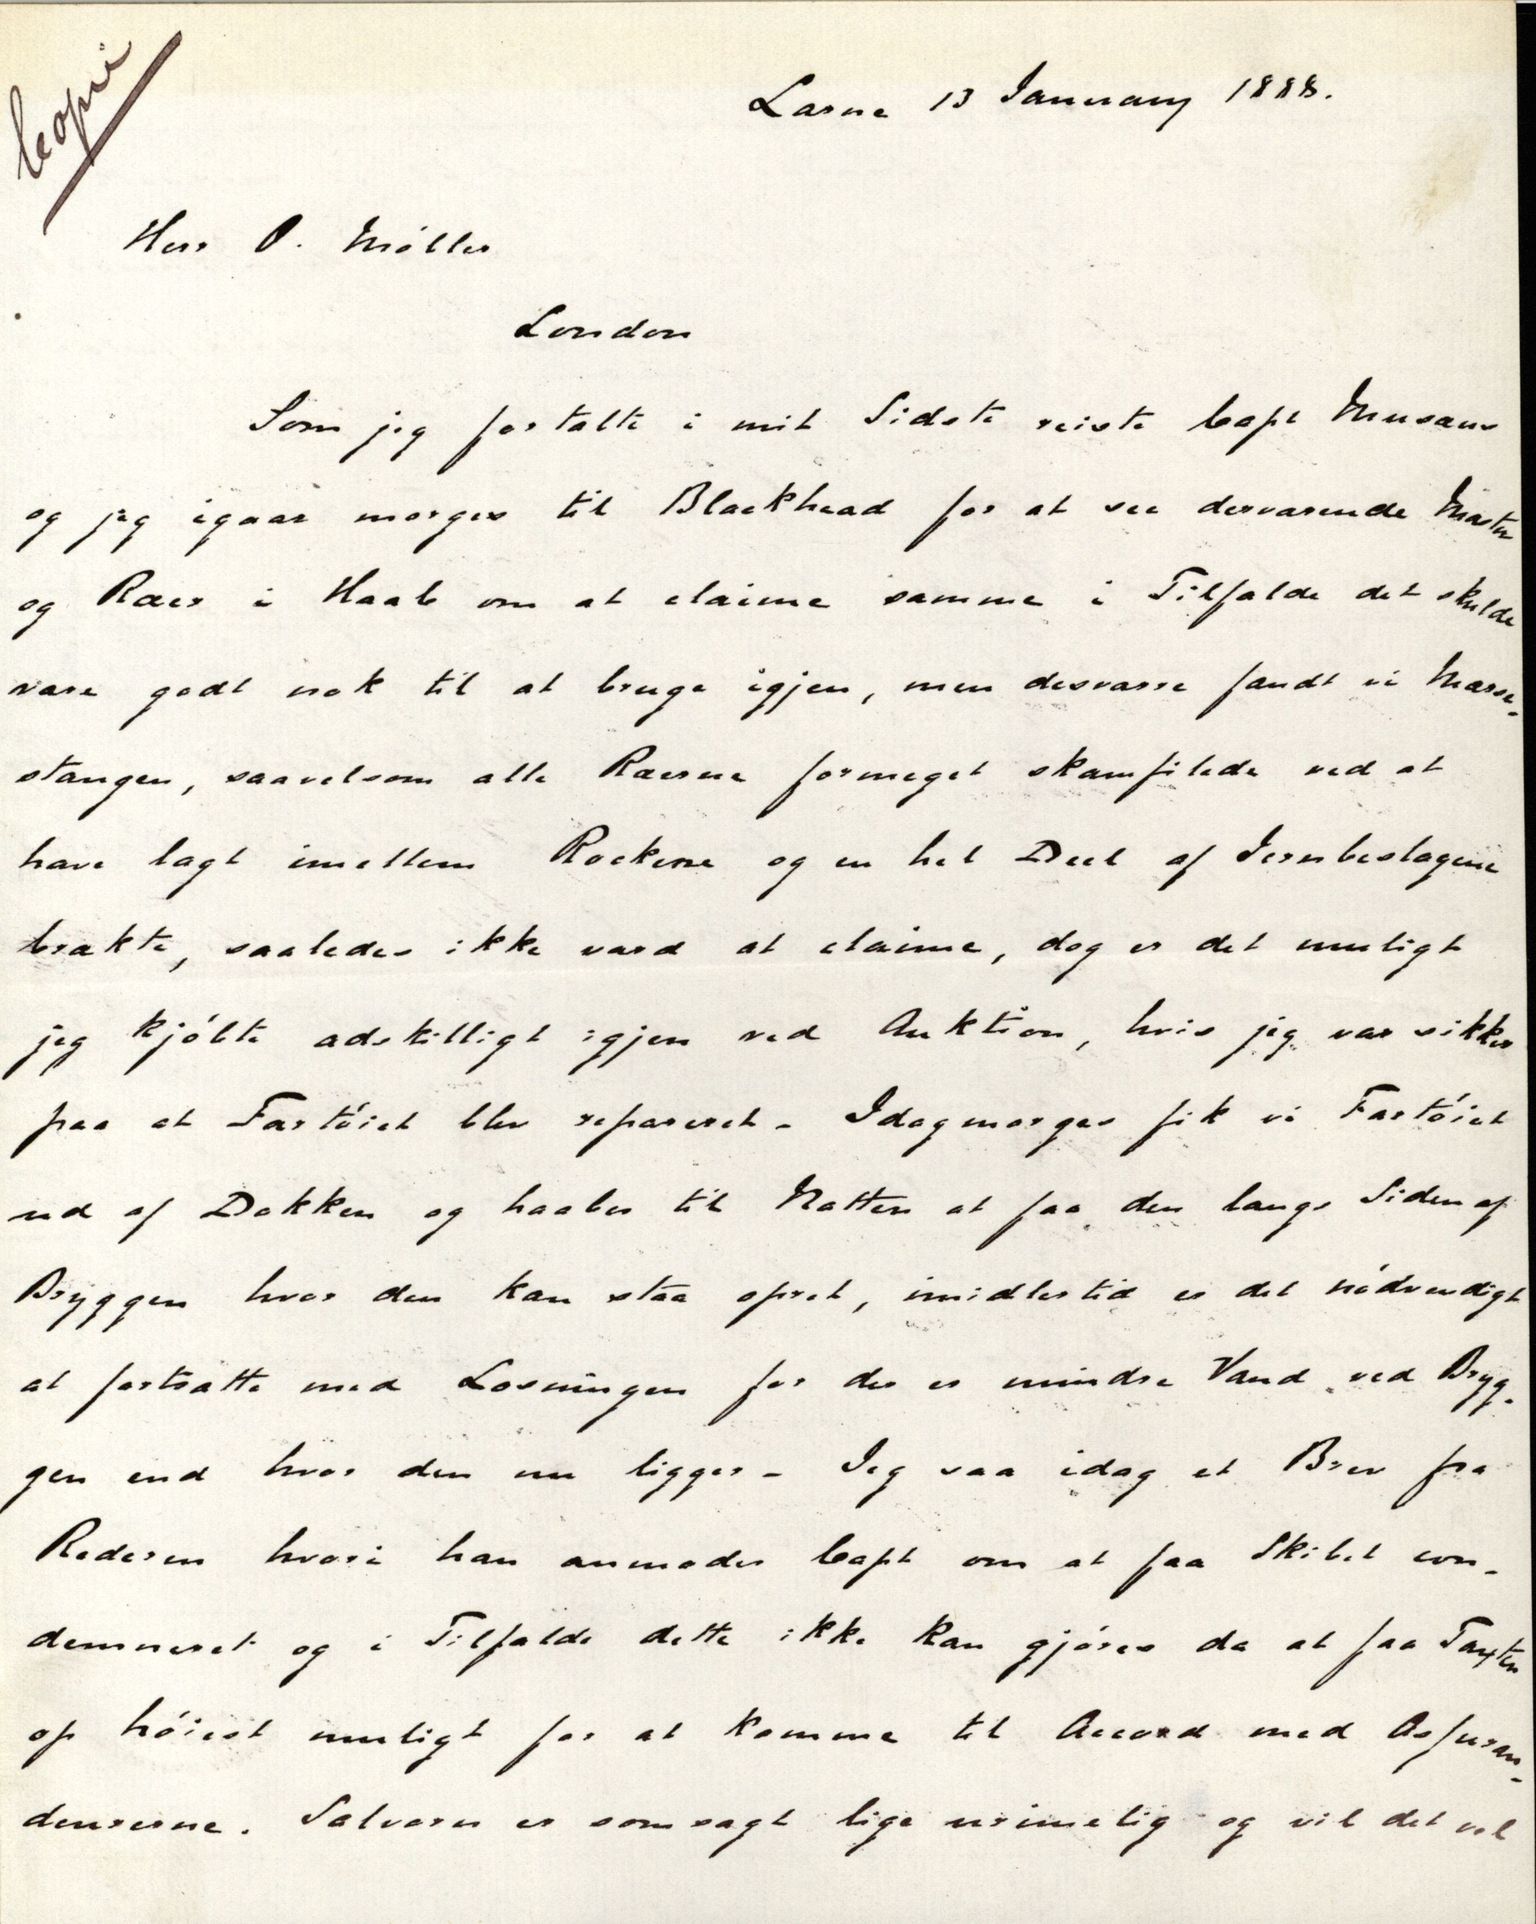 Copi
Larne 13 January 1888.
Herr O. Møller
London
Som jeg fortalte i mit Sidste reiste Capt Musæus
og jeg igaar morges til Blackhead for at see derværende Master
og Ræer i Haab om at claime samme i Tilfælde det skulde
være godt nok til at bruge igjen, men desværre fandt vi Merse-
stangen, saavelsom alle Ræerne formeget skamfilede ved at
have lagt imellem Rockene og en hel Deel af Jernbeslagene
brækte, saaledes ikke værd at claime, dog er det muligt
jeg kjøbte adskilligt igjen ved Auktion, hvis jeg var sikker
paa at Fartøiet blev repareret - Idagmorges fik vi Fartøiet
ud af Dokken og haaber til Natten at faa den langs Siden af
Bryggen hvor den kan staa opret, imidlertid er det nødvendigt
at fortsætte med Losningen for der er mindre Vand ved Bryg-
gen end hvor den nu ligger - Jeg saa idag et Brev fra
Rederen hvori han anmoder Capt om at faa Skibet con-
demneret og i Tilfælde dette ikke kan gjøres da at faa Taxten
op høiest muligt for at komme til Accord med Assuran-
deurerne. Salvoren er somsagt lige urimelig og vil det vel